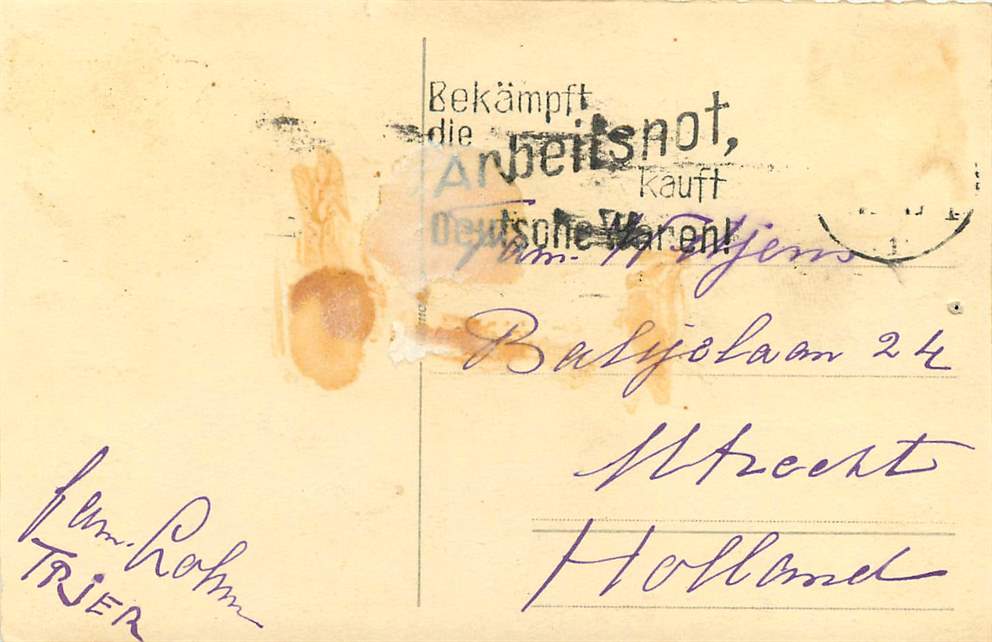 Bekämpft
die
Arbeitsnot,
kauft
Deutsche Waren!
Fam. H. Tijens
24
Utrecht
Holland
fam. Lohm
TRIER